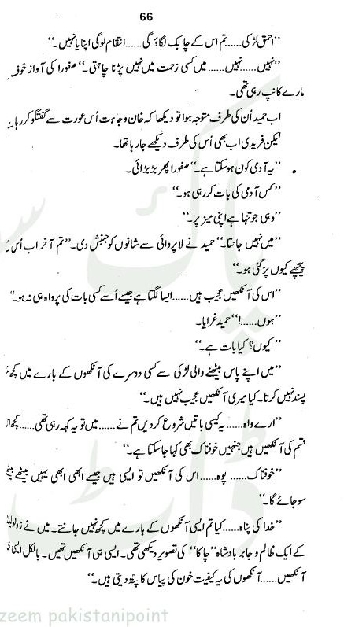 66
"احمق لڑکی...... تم اس کے چابک لگاؤ گی...... انتقام لو گی اپنا یا نہیں۔"
"نہیں...... نہیں...... میں کسی زحمت میں نہیں پڑنا چاہتی۔" صفورا کی آواز خوف
مارے کانپ رہی تھی۔
اب حمید اُن کی طرف متوجہ ہوا تو دیکھا کہ خان وجاہت اُس عورت سے گفتگو کر رہا
لیکن فریدی اب بھی اُس کی طرف دیکھے جا رہا تھا۔
"یہ آدمی کون ہو سکتا ہے۔" صفورا پھر بڑبڑائی۔
"کس آدمی کی بات کر رہی ہو۔"
"وہی جو تنہا ہے اپنی میز پر۔"
"میں نہیں جانتا۔" حمید نے لاپروائی سے شانوں کو جنبش دی۔ "تم آخر اب اُس
پیچھے کیوں پڑ گئی ہو۔"
"اس کی آنکھیں عجیب ہیں...... ایسا لگتا ہے جیسے اُسے کسی بات کی پرواہ ہی نہ ہو۔"
"ہوں......!" حمید غرایا۔
"کیوں؟ کیا بات ہے۔"
"میں اپنے پاس بیٹھنے والی لڑکی سے کسی دوسرے کی آنکھوں کے بارے میں کچھ
پسند نہیں کرتا۔ کیا میری آنکھیں عجیب نہیں ہیں۔"
"ارے واہ...... یہ کیسی باتیں شروع کر دیں تم نے...... میں تو یہ کہہ رہی تھی......
"تم کی آنکھیں ہیں جنہیں خوفناک بھی کہا جا سکتا ہے۔"
"خوفناک...... ہونہہ...... اس کی آنکھیں تو ایسی ہیں جیسے ابھی ابھی یہیں بیٹھے
سو جائے گا۔"
"خدا کی پناہ...... کیا تم ایسی آنکھوں کے بارے میں کچھ نہیں جانتے۔ میں نے
کے ایک ظالم و جابر بادشاہ "چاکا" کی تصویر دیکھی تھی۔ ایسی ہی آنکھیں تھیں۔ بالکل
آنکھیں...... آنکھوں کی یہ کیفیت خون کی پیاس کا پتہ دیتی ہیں۔"
zeem pakistanipoint